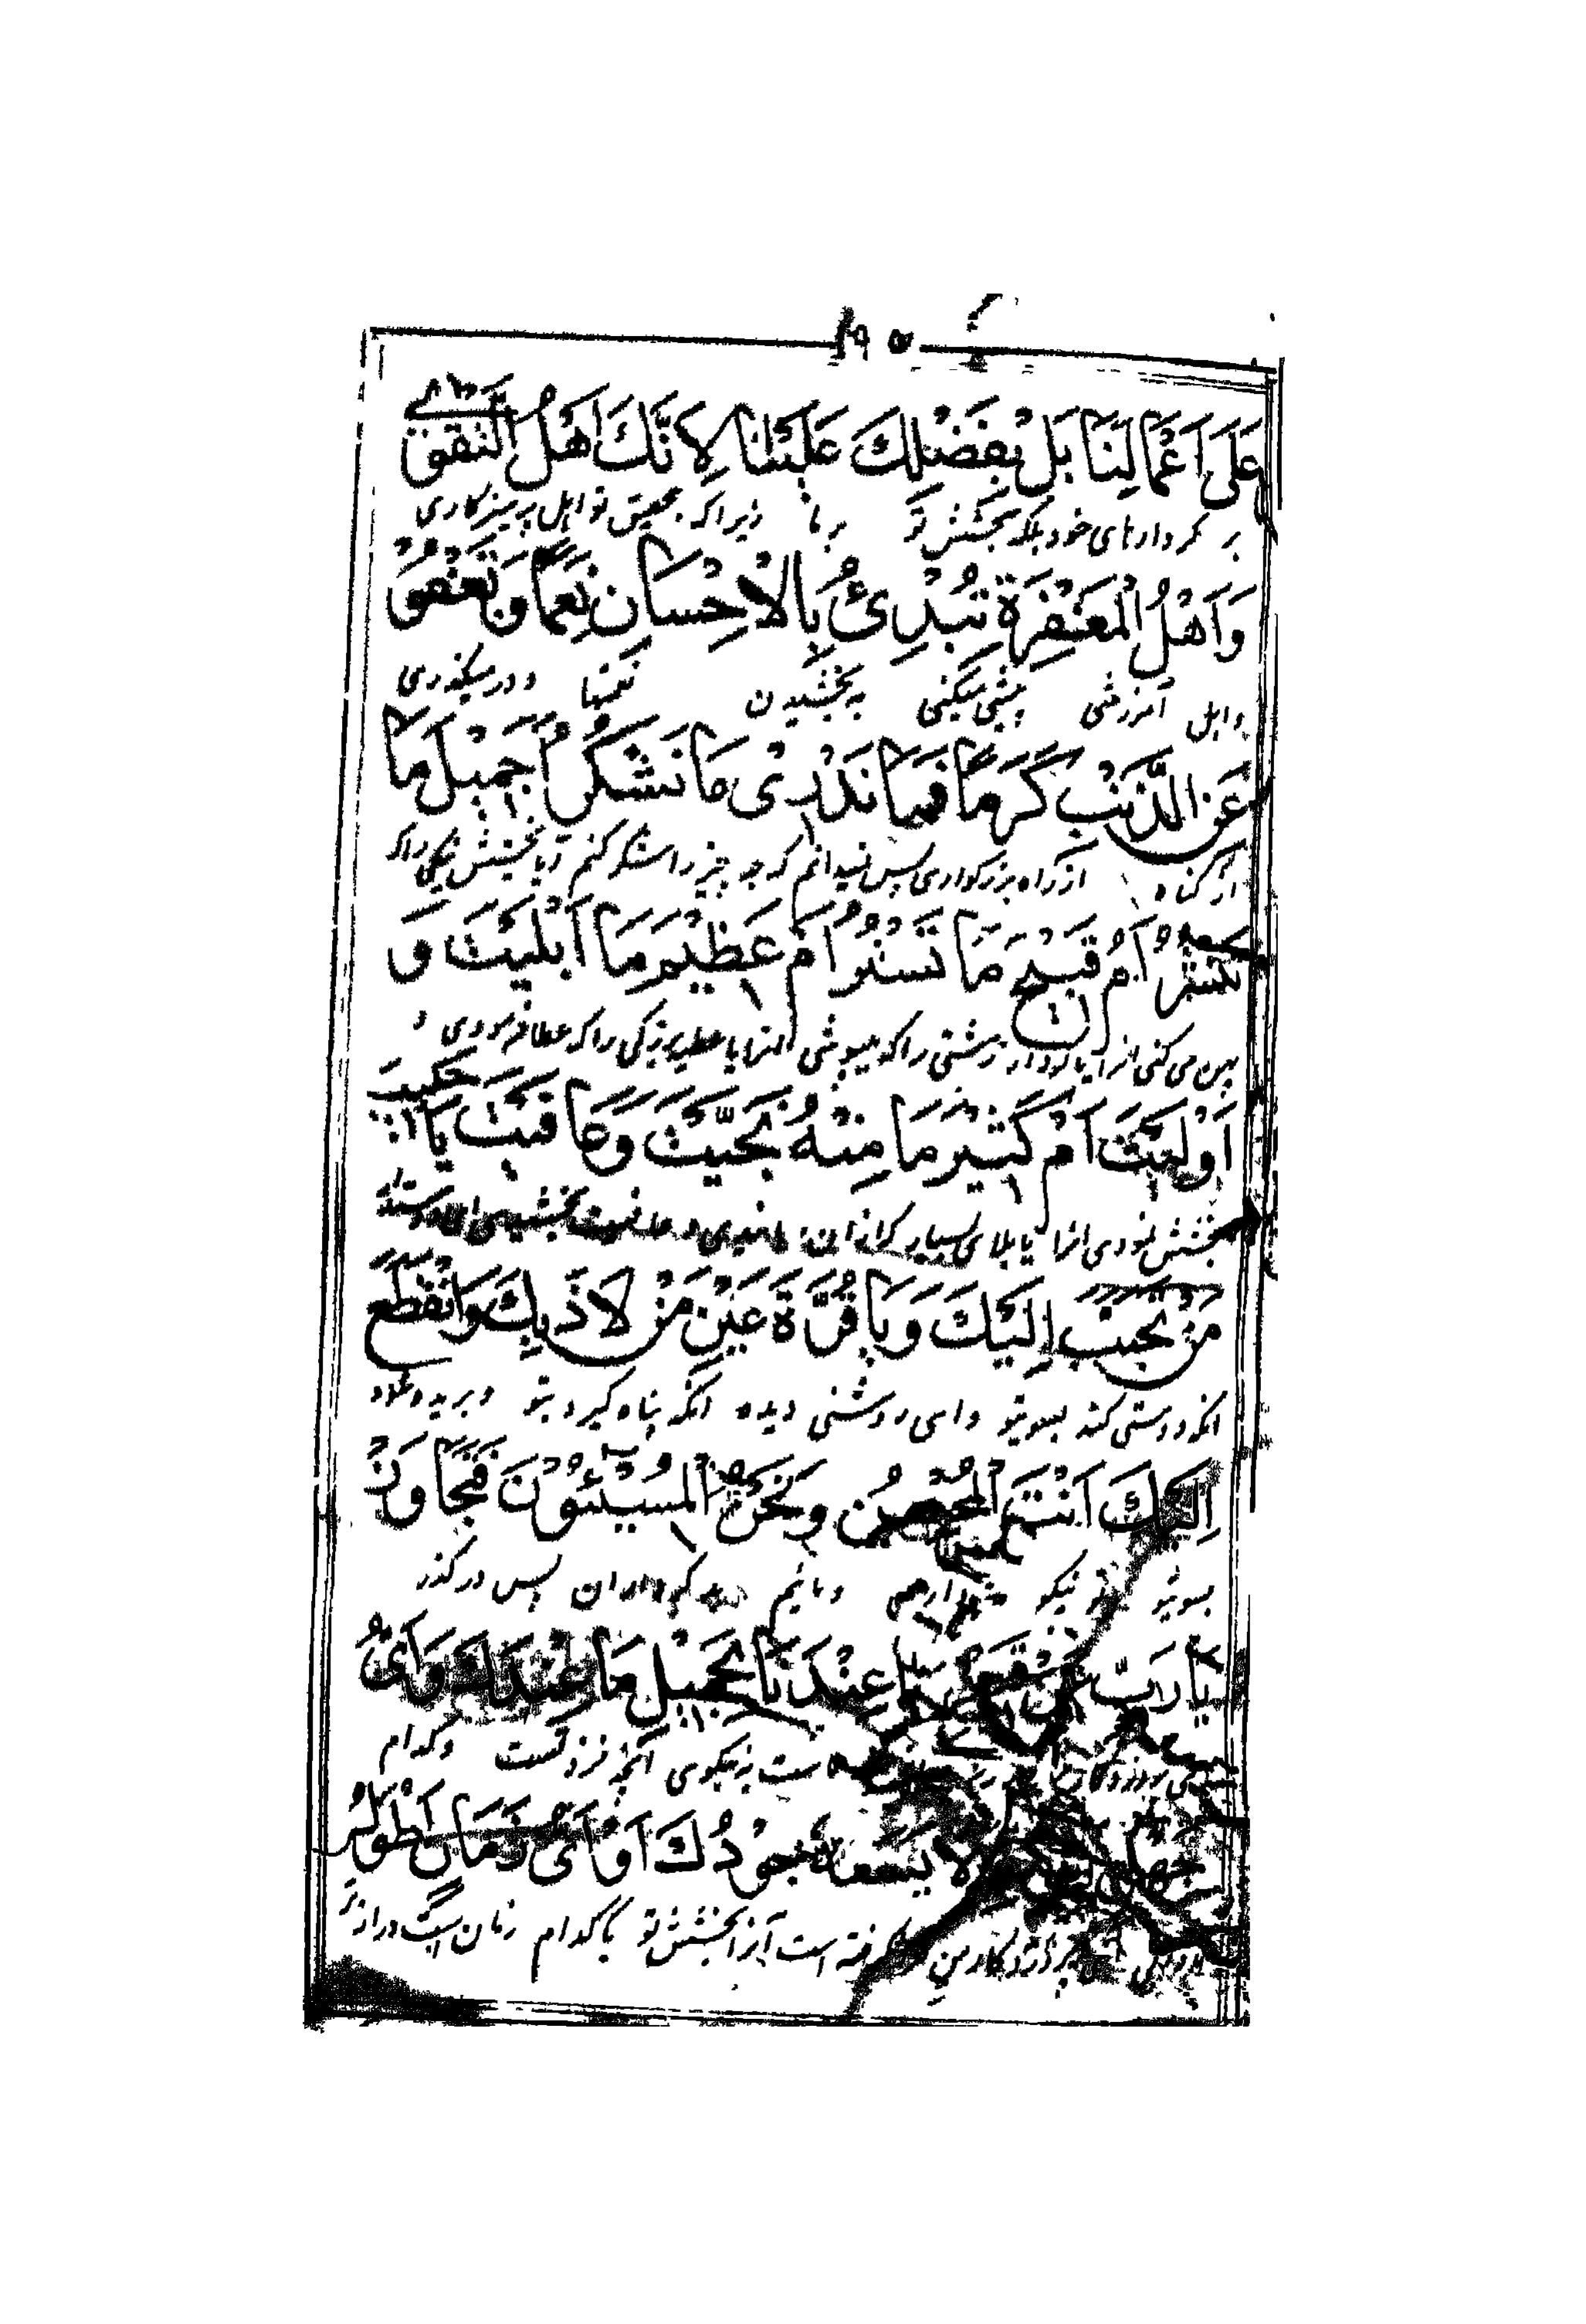 ١٩٥
عَلَى اَعْمَالِنَا بَلْ بِفَضْلِكَ عَلَيْنَا لِاَنَّكَ اَهْلُ التَّقْوٰى
بر کردارهای خود بلکه ببخشش تو بر ما زیرا که بتحقیق تو اهل پرهیزکاری
وَاَهْلُ الْمَغْفِرَةِ تُبْدِئُ بِالْاِحْسَانِ نِعَمًا وَتَعْفُوْ
واهل آمرزشی پیشی میکنی به بخشیدن نعمتها و در میگذری
عَنِ الذَّنْبِ كَرَمًا فَمَا نَدْرِىْ مَا نَشْكُرُ اَجَمِيْلَ مَا
از گناه از راه بزرکواری پس نمیدانم که چه چیز را شکر کنم آیا بخشش نیکی را که
تَنْشُرُ اَمْ قَبِيْحَ مَا تَسْتُرُ اَمْ عَظِيْمَ مَا اَبْلَيْتَ وَ
پهن می کنی انرا یا زشتی را که میپوشی انرا یا بزرکی را که عطا فرمودی و
اَوْلَيْتَ اَمْ كَثِيْرَ مَا مِنْهُ نَجَّيْتَ وَعَافَيْتَ يَا حَبِيْبَ
بخشش نمودی انرا یا بلای بسیار که ازان و عافیت بخشیدی ای دوستدار
مَنْ تَحَبَّبَ اِلَيْكَ وَيَا قُرَّةَ عَيْنِ مَنْ لَاذَ بِكَ وَانْقَطَعَ
انکه دوستی کند بسویتو وای روشنی دیده انکه پناه گیرد بتو و بریده شود
اِلَيْكَ اَنْتَ الْمُحْسِنُ وَنَحْنُ الْمُسِيْئُوْنَ فَتَجَاوَزْ
بسویتو تو نیکو و مائیم کرداران پس در گذر
يَا رَبِّ عَنْ قَبِيْحِ مَا عِنْدَنَا بِجَمِيْلِ مَا عِنْدَكَ وَاَىُّ
است به نیکوی آنچه نزد تست و کدام
جَهْلٍ لَا يَسَعُهُ جُوْدُكَ اَوْ اَىُّ زَمَانٍ اَطْوَلُ
پروردکار من نکرفته است آنرا بخشش تو یا کدام زمان است دراز تر